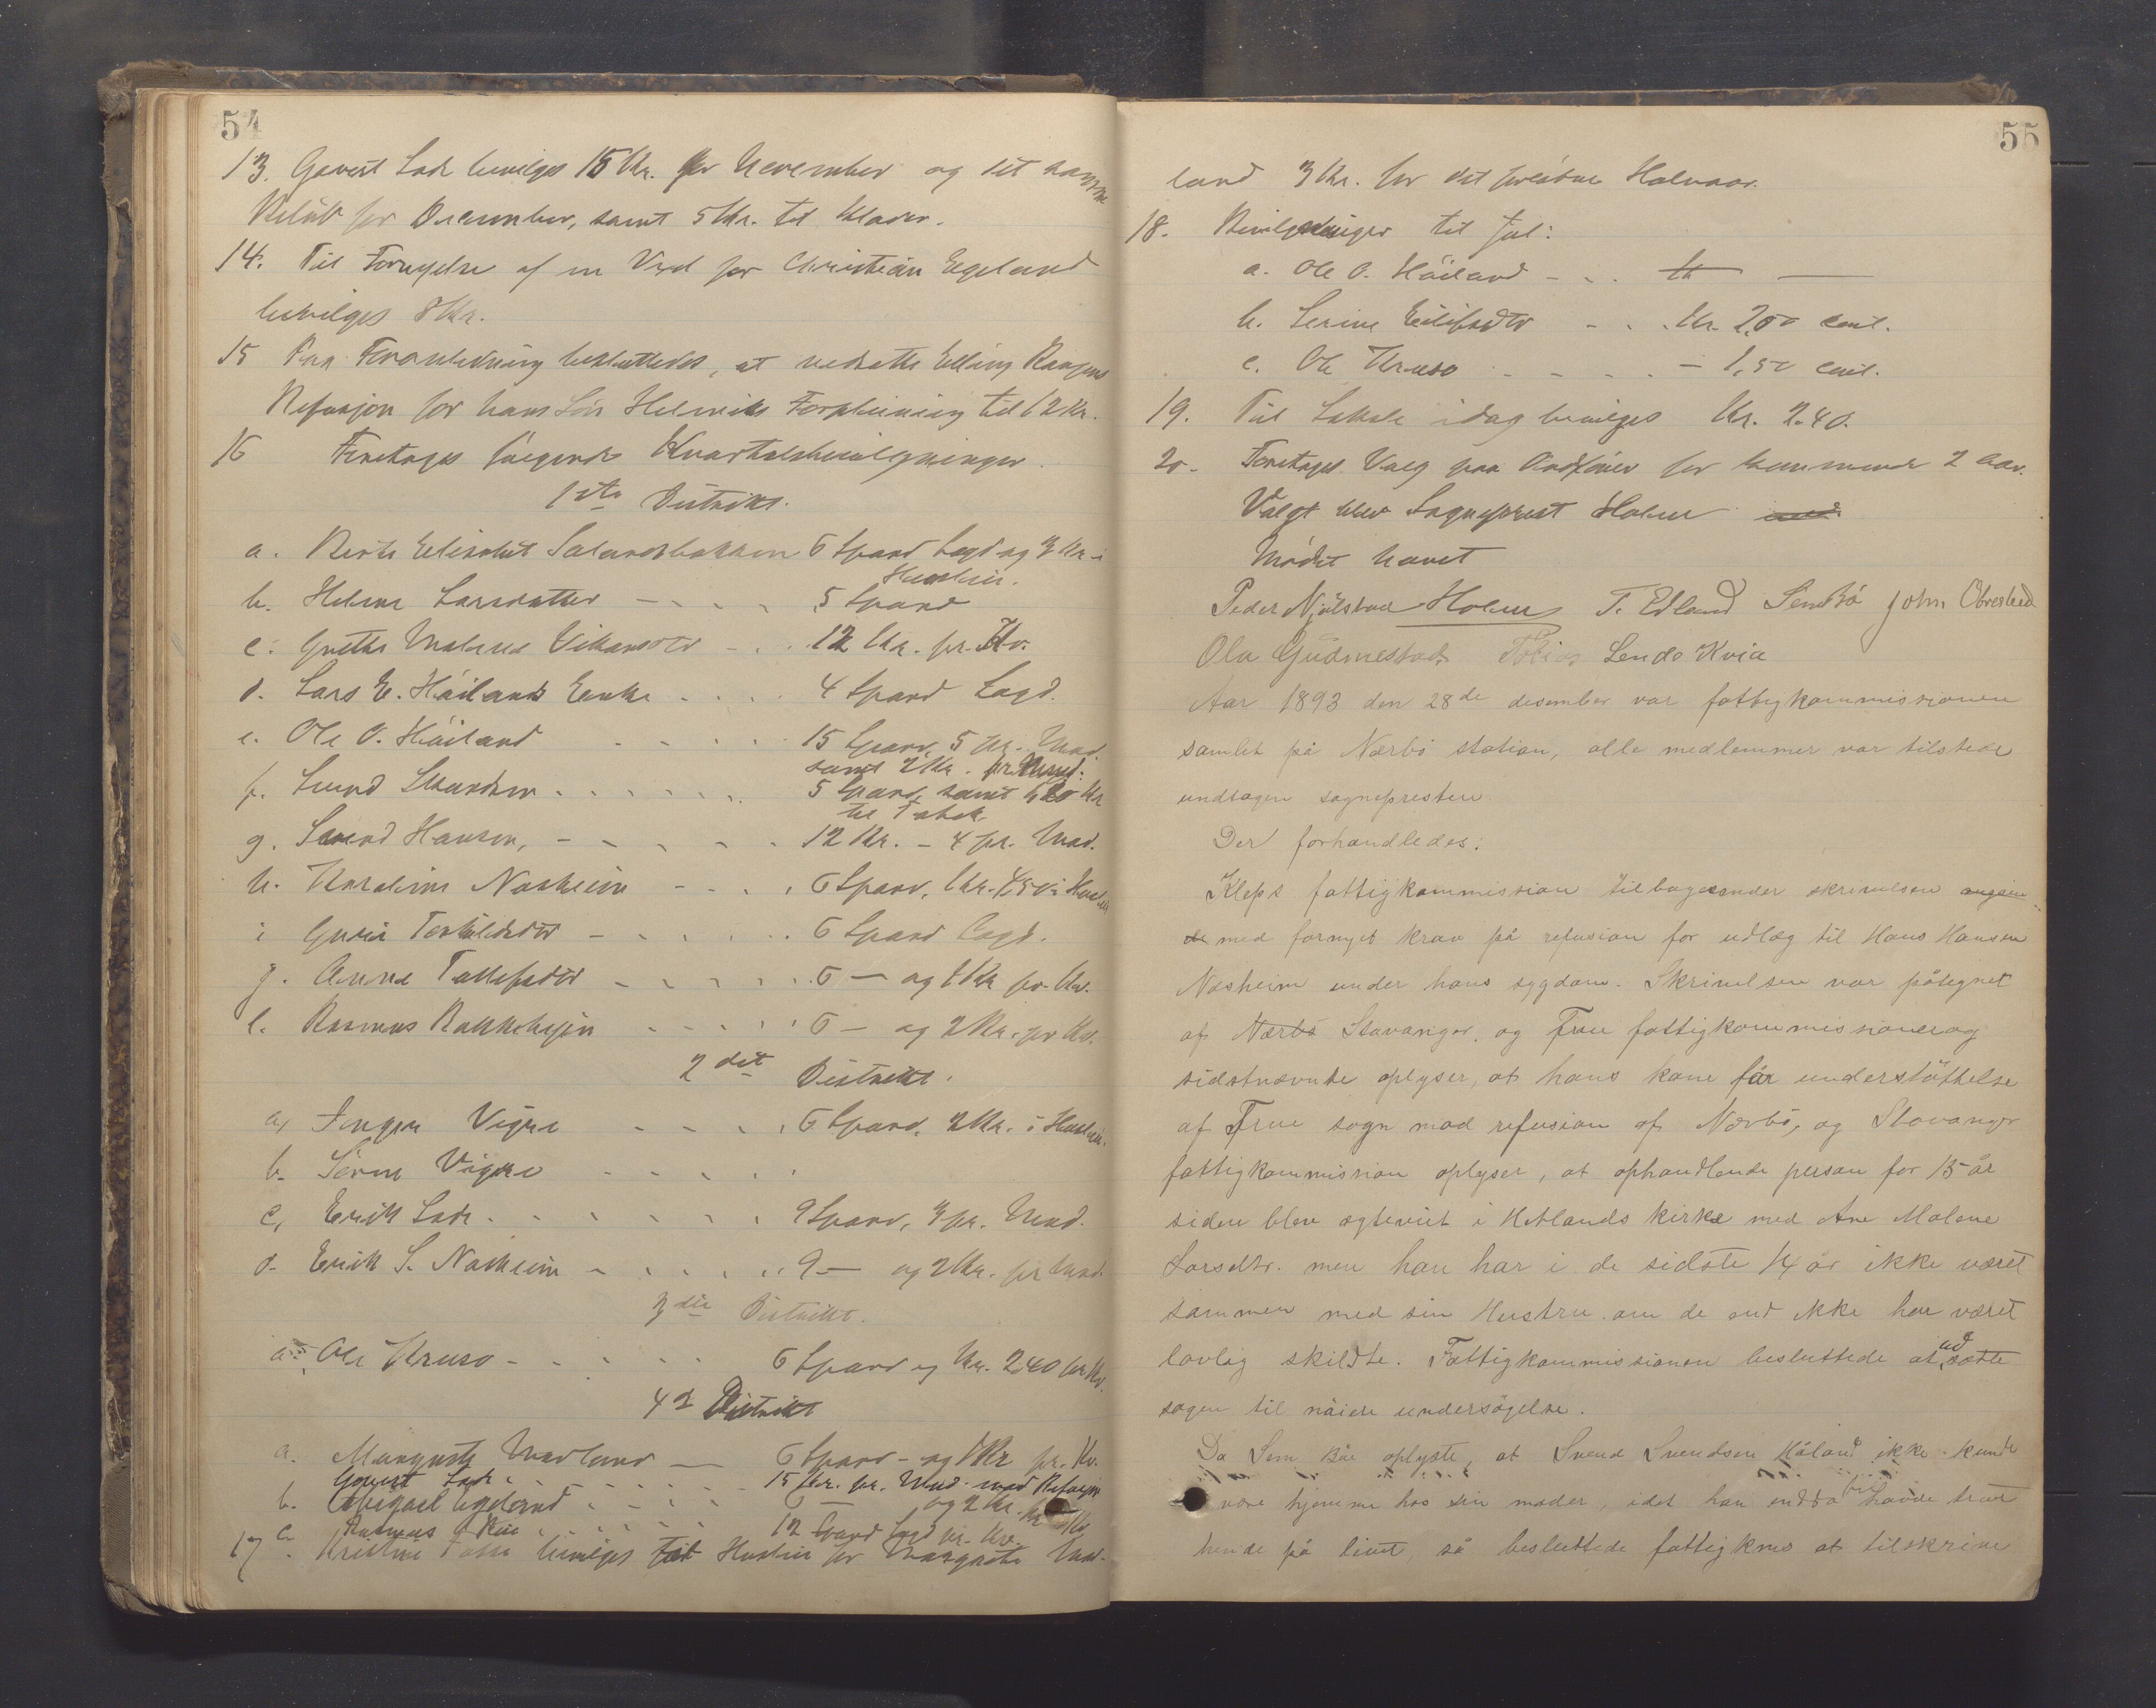 54
13. Govert Lode bevilges 15 Kr. for November og det samme
Beløb for December, samt 5 Kr. til Klæder.
14. Til Fornyelse af en Væd for Christian Egeland
bevilges 8 Kr.
15 Paa Foranledning besluttedes, at nedsætte Elling Kaasens
Refusjon for hans Søn Helmiks Forpleining til 12 Kr.
16 Foretages følgende Kvartalsbevilgninger.
1ste Distrikt.
a. Berte Elisabet Salandsbakken 6 Spand Lagd og 3 Kr. i
Husleie.
b. Helene Larsdatter - - - 5 Spand
c. Grethe Malene Vikansdtr - . . 12 Kr. pr. Kv.
d. Lars E. Höilands Enke . . . 4 Spand Lagd.
e. Ole O. Höiland . . . . 15 Spand, 5 pr. Mnd.
samt 2 Kr. pr. Mnd:
f. Svend Svendsen . . . . . . 5 Spand, samt Kr
til Tobak
g. Svend Hansen, - - - - - 12 Kr. - 4 pr. Mnd.
h. Karoline Nasheim - - - . 6 Spand, Kr. 4,50 i Husleie
i Guria Torkildsdtr - . . . . 6 Spand Lagd.
j. Anna Tollefsdtr - - - - . 6 — og 1 Kr pr. Kv.
l. Rasmus Bakkehejen - - - . . 6 — og 2 Kr. pr Kv.
2det Distrikt.
a, Inger Vigre - - - . 6 Spand, 2 Kr. i Husleie.
b. Sören Vigre - - - - .
c, Erik Lode . . . . . . . 9 Spand, 3 pr. Mnd.
d. Erik S. Nasheim - . . . . . 9 — og 2 Kr. pr Mnd.
3die Distrikt.
a, Ole Kruso - - . . . . 6 Spand og Kr. 2.40 pr Kv.
4d Distrikt
a. Margrete Madland — 6 Spand - og 1 Kr pr. Kv.
Govert Lode . . . . . 15 Kr. pr. Mnd. mod Refusjon
b. Abigael Egeland . . . . . 6 — og 2 Kr. pr Kv
c. Rasmus . . . . . . 12 Spand Lagd pr. Kv.
17. Kristine bevilges Husleie for Margrete Mad-
55
land 3 Kr. for det forløbne Halvaar.
18. Bevilgninger til Jul:
a. Ole O. Höiland - - . Kr —
b. Serine Eilifsdtr - . . Kr. 2,00 enl.
c. Ole Kruso . - - - . — 1,50 enl.
19. Til Lokale idag bevilges Kr. 2.40.
20. Foretages Valg paa Ordfører for kommende 2 Aar.
Valgt blev Sogneprest Holme
Mødet hævet
Peder Njölstad Holme T. Edland Sem Bö John Obrestad
Ola Gudmestad Tobias Lende Kvia
Aar 1893 den 28de desember var fattigkommissionen
samlet på Nærbö station, alle medlemmer var tilstede
undtagen sognepresten.
Der forhandledes:
Kleps fattigkommission tilbagesender skrivelsen angåen
de med fornyet krav på refusion for udlæg til Hans Hansen
Nasheim under hans sygdom. Skrivelsen var påtegnet
af Nærbö Stavanger, og Frue fattigkommissioner og
sidstnævnte oplyser, at hans kone får understöttelse
af Frue sogn mod refusion af Nærbö, og Stavanger
fattigkommission oplyser, at ophandlende person for 15 år
siden blev ægteviet i Hetlands kirke med Ane Malene
Larsdtr. men han har i de sidste 14 år ikke været
sammen med sin Hustru om de end ikke har været
lovlig skildte. Fattigkommissionen besluttede at udsætte
sagen til nåiere undersögelse.
Da Sem Bö oplyste, at Svend Svendsen Håland ikke kunde
være hjemme hos sin moder, idet han endda havde truet
hende på livet, så besluttede fattigkms at tilskrive